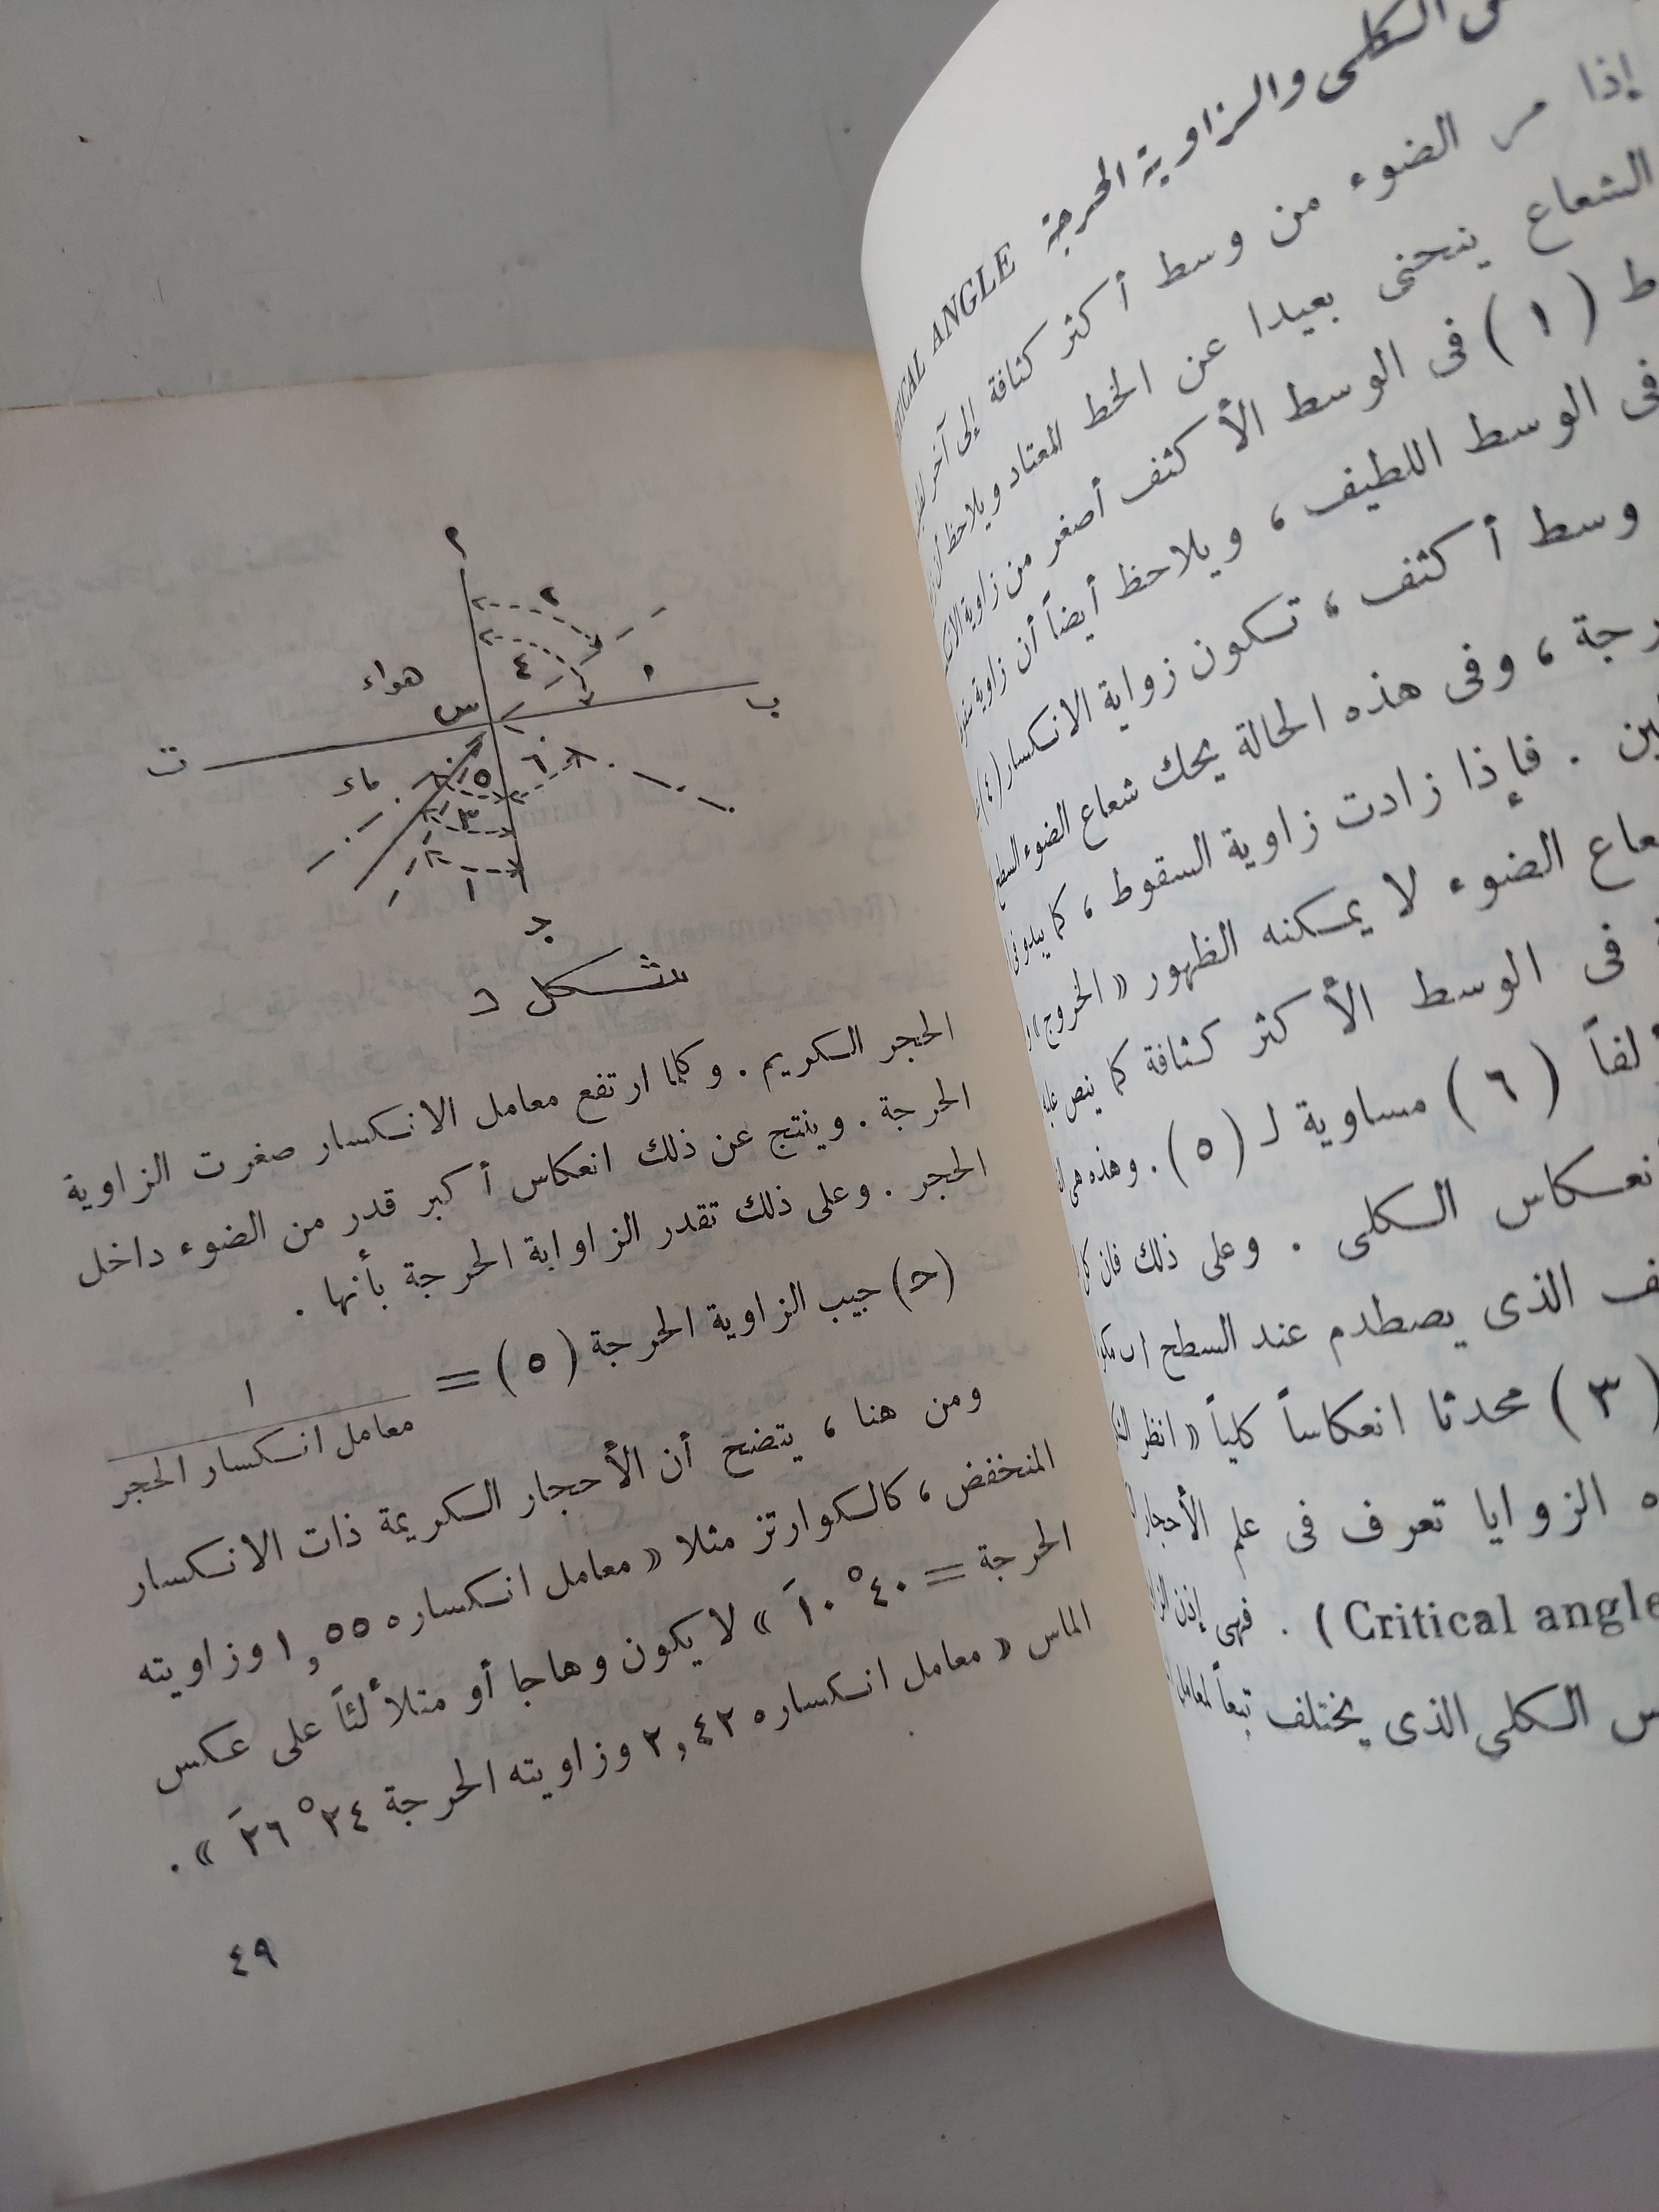 الكلى والزاوية الحرجة ICAL ANGLE
إذا مر الضوء من وسط أكثر كثافة إلى آخر
الشعاع ينحنى بعيدا عن الخط المعتاد ويلاحظ أن
( ١ ) فى الوسط الأكثف أصغر من زاوية
فى الوسط اللطيف ، ويلاحظ أيضاً أن زاوية
وسط أكثف ، تكون زواية الانكسار (٤)
، وفى هذه الحالة يحك شعاع الضوء السطح
. فإذا زادت زاوية السقوط ، كما يبدو فى
الضوء لا يمكنه الظهور « الخروج »
فى الوسط الأكثر كثافة كما ينص عليه
( ٦ ) مساوية لـ ( ٥ ) . وهذه هى
الكلى . وعلى ذلك فان
الذى يصطدم عند السطح
( ٣ ) محدثا انعكاساً كلياً « انظر
الزوايا تعرف فى علم الأحجار
(Critical angle . فهى إذن
الكلى الذى يختلف تبعاً لمعامل
م
٢
٤
١
هواء
س
ب
ت
ماء
٥
٦
٣
١
ج
شكل د
الحجر الكريم . وكلما ارتفع معامل الانكسار صغرت الزاوية
الحرجة . وينتج عن ذلك انعكاس أكبر قدر من الضوء داخل
الحجر . وعلى ذلك تقدر الزاوابة الحرجة بأنها .
(ح) جيب الزاوية الحرجة ( ٥ ) =
١
معامل انكسار الحجر
ومن هنا ، يتضح أن الأحجار الكريمة ذات الانكسار
المنخفض ، كالكوارتز مثلا « معامل انكساره ١,٥٥ وزاويته
الحرجة = ٤٠° ١٠َ » لا يكون وهاجا أو متلألئاً على عكس
الماس « معامل انكساره ٢,٤٢ وزاويته الحرجة ٢٤° ٢٦َ » .
٤٩